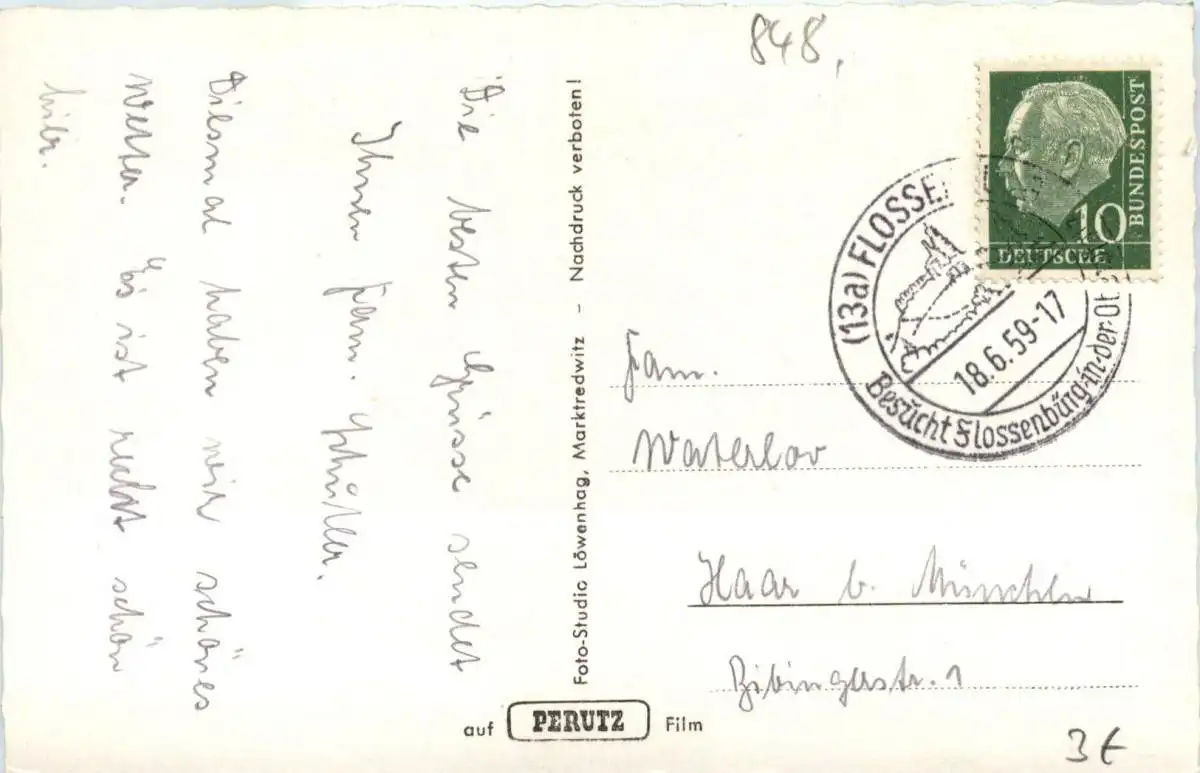 848,
Die besten Grüsse sendet
Ihnen Fam. Schuller.
Diesmal haben wir schönes
Wetter. Es ist recht schön
hier.
Foto-Studio Löwenhag, Marktredwitz – Nachdruck verboten!
auf PERUTZ Film
DEUTSCHE
BUNDESPOST
10
(13a) FLOSSE
18.6.59-17
Besucht Flossenbürg in der
Fam.
Waterloo
Haar b. München
1
3€